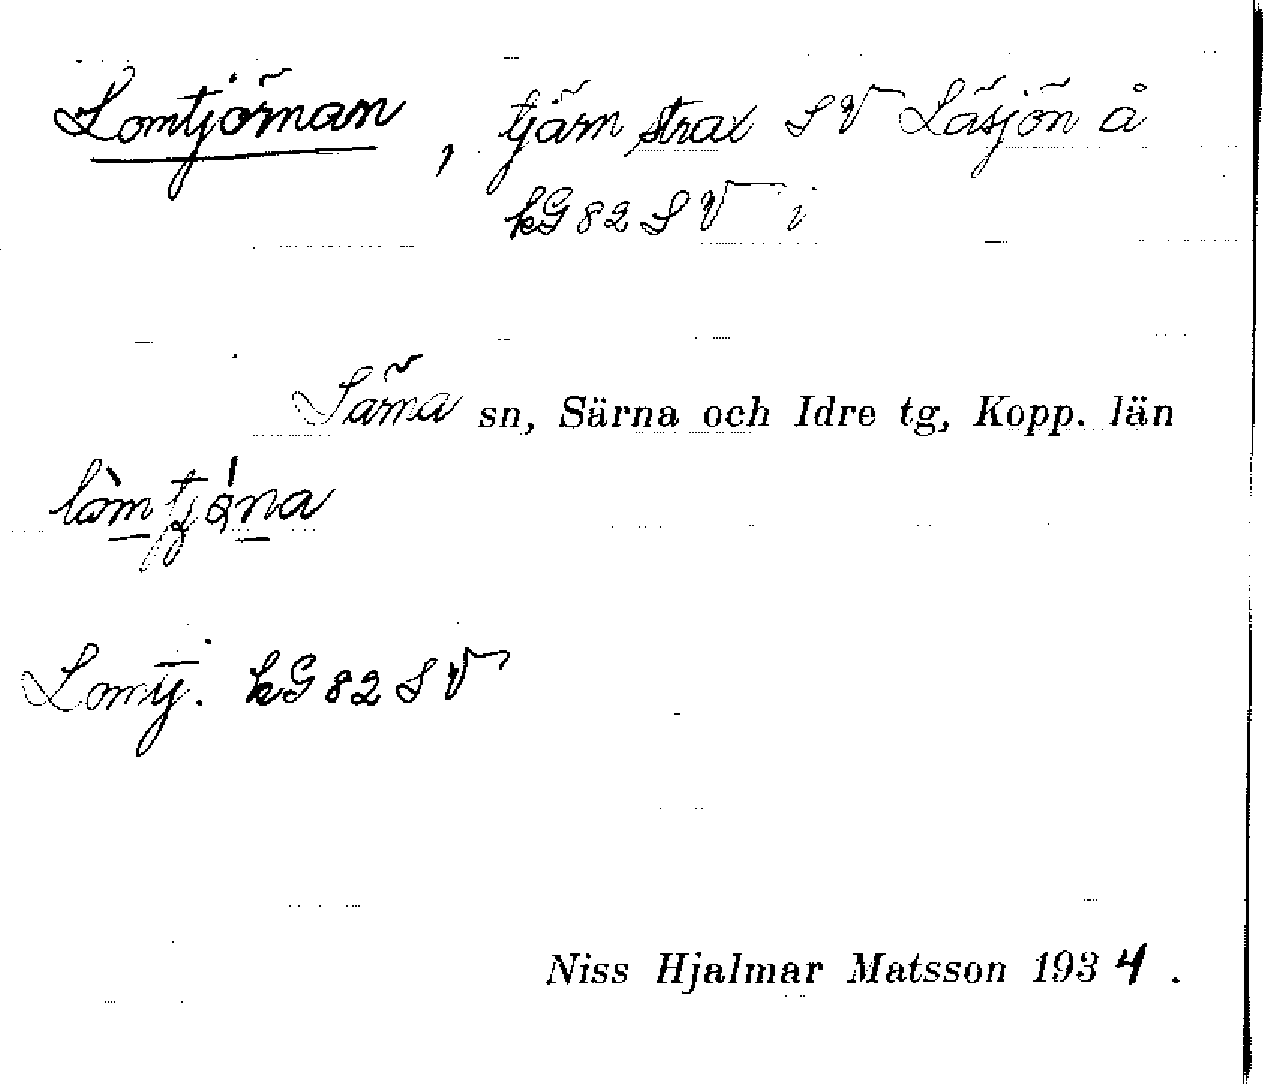 Lomtjörnan, tjärn strax SV Läsjön å
kG 82 SV i
Särna sn, Särna och Idre tg, Kopp. län
Lomtj. kG 82 SV
Niss Hjalmar Matsson 1934.